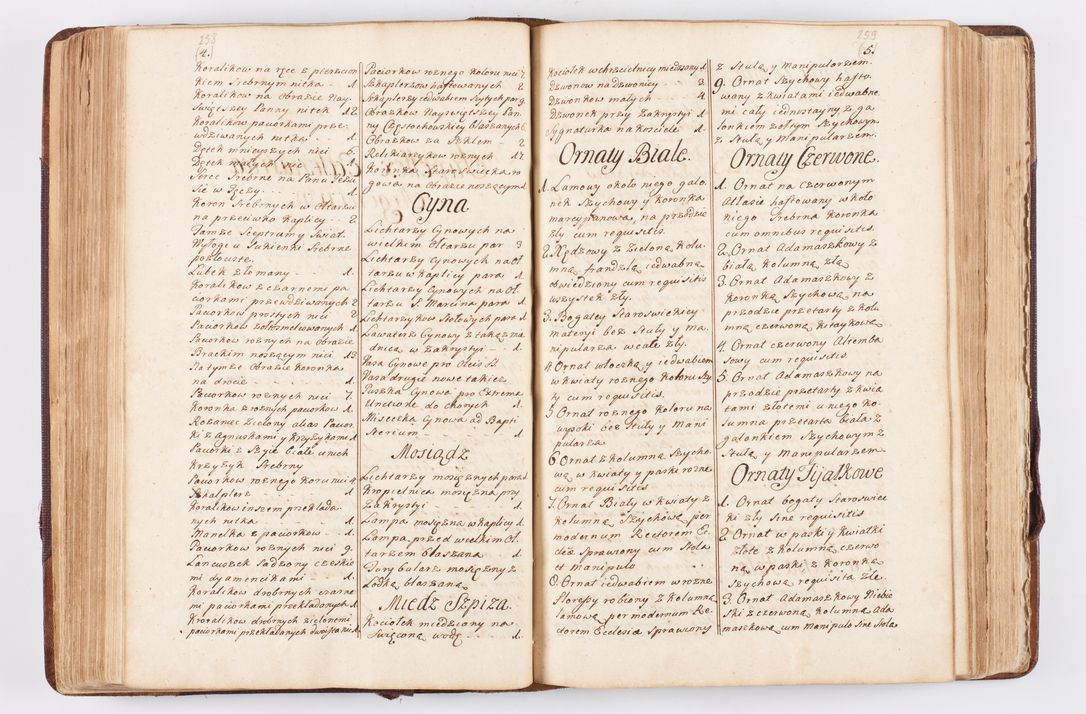 258
(4.)
Koralikow na ręce z pierscion
kiem Srebrnym nitka . 1.
Koralikow na Obrazie Nay
Swiętszy Panny nitek 12
Koralikow paciorkami prze
wdziwanych nitka . 1.
Dętek mnieyszych nici 6.
Dętek małych nic 1.
Serce Srebrne na Panu Jezu
sie w Ręczy . 1.
Koron Srebrnych w Ołtarzu
na przeciwko Kaplicy . 2
Tamże Sceptrumy Swiat.
Wyłogi u Sukienki Srebrne
pozłouste.
Lubek złomany 1.
Koralikow z czarnemi pa
ciorkami przewdziwanych 2
Paciorkow prostych nici 2
Paciorkow zołtomelowanych 1
Paciorkow roznych na Obrazie
Brackim noszącym nici 13
Na tymze Obrazie Koronka
na drocie 1.
Paciorkow roznych nici 7.
Koronka z roznych paciorkow 1.
Rozaniec zielony alias Pacior
ki z Agnuskami y krzyzykami 1
Paciorki z Szyie białe u nich
Krzyzyk Srebrny
Paciorkow roznego Koru nici 4
Szkaplerz 1
Koralikow inszem przeklada
nych nitka 1.
Manelka z paciorkow 1.
Paciorkow roznych nici 9.
Lancuszek Sadzony czeskie
mi dyamencikami 1.
Koralikow drobnych czarne
mi paciorkami przekladanych 1
Koralikow drobnych zielonemi
paciorkami przekladanych
Paciorkow roznego Koloru nici 7
Szkaplerzow haftowanych 2
Szkaplerzy iedwabiem szytych par 9
Obrazkow Nayswiętszy Pan
ny Częstochowskiey blaszanych 6
Obrazkow za Szklem 2
Relikiarzykow roznych 17
Koronka Staroswiecka ro
gowa na Obrazie noszącym 1
Cyna
Lichtarzy Cynowych na
wielkim Ołtarzu par 3
Lichtarzy Cynowych na Oł
tarzu w Kaplicy para 1
Lichtarzy Cynowych na Oł
tarzu S. Marcina para 1
Lichtarzykow Stołowych para 1
Lawaterz Cynowy z taką zna
dnica w zakrystyi 1.
Vasa Cynowe pro Oleis SS.
Vasa drugie nowe takiez
Puszka Cynowa pro Extrema
Unctione do chorych 1.
Miseczka Cynowa ad Bapti
sterium 1.
Mosiądz
Lichtarzy mosięznych para 1
Kropielnica mosięzna przy
Zakrystyi 1.
Lampa mosięzna w Kaplicy 1.
Lampa przed wielkim Oł
tarzem blaszana 1.
Turybularz mosięzny z
Łodką blaszaną
Miedz Szpiza.
Kociołek miedziany na
Swięconą wodę 1.
259
(5.)
Kociołek w chrzcielnicy miedziany 1
Dzwonow na Dzwonicy 3
Dzwonkow małych 4
Dzwonek przy Zakrystyi 1.
Sygnaturka na Kosciele 1.
Ornaty Białe.
1. Lamowy około niego galo
nek Szychowy y Koronka
marcypanowa, na przodzie
zły cum requisitis.
2. Rędzowy z Zieloną Kolu
mną frandzlą iedwabną
obwiedziony cum requisitis
wszystek zły.
3. Bogatey Staroswieckiey
materyi bez Stuły y Ma
nipularza w cale zły.
4. Ornat włoczką y iedwabiem
w Kwiaty roznego Koloru szy
ty cum requisitis.
5. Ornat roznego Koloru na
wysoki bez Stuły y Mani
pularza
6. Ornat z kolumną Szycho
wą w kwiaty y paski rozne
cum requisitis
7. Ornat Biały w kwiaty z
Kolumną Szychową per
modernum Rectorem E
cclaæ Sprawiony cum Stola
et Manipulo
8. Ornat iedwabiem w rozne
Floresy robiony z Kolumną
lamową per modernum Re
ctorem Ecclesiæ Sprawiony
z Stułą y Manipularzem.
9. Ornat Szychowy hafto
wany z kwiatami iedwabne
mi cały iednostayny z ga
lonkiem zołtym Szychowym
z Stułą y Manipularzem.
Ornaty Czerwone.
1. Ornat na Czerwonym
Atłasie haftowany wkoło
niego Srebrna Koronka
cum omnibus requisitis.
2. Ornat Adamaszkowy z
białą Kolumną złą
3. Ornat Adamaszkowy z
Koronką Szychową na
przodzie przetarty z Kolu
mną czerwoną Kitaykową
4. Ornat czerwony Altemba
sowy cum requisitis
5. Ornat Adamaszkowy na
przodzie przetarty z kwia
tami złotemi u niego Ko
lumna przetarta biała z
galonkiem Szychowym z
Stułą y Manipularzem
Ornaty Fijałkowe
1. Ornat bogaty Staroswiec
ki zły sine requisitis
2. Ornat w paski y Kwiatki
złote z Kolumną czerwo
ną w paski z Koronką
Szychową requisita złe.
3. Ornat Adamaszkowy Niebie
ski z czerwoną Kolumną Ada
maszkową cum Manipulo sine Stola